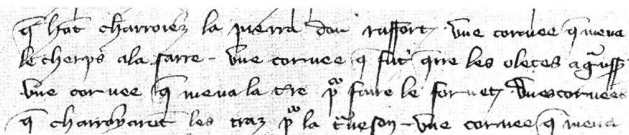 q̃ hõt charroiez la pierra dou raffort vne coruee q̃ mena
le cherpẽ a la farre – vne coruee q̃ fut qre les oletes
vne coruee q̃ mena la t̃re p̃ faire le fornet vnes coruees
q̃ charroyarẽt les traz p̃ la t̃ueson – vne coruee q̃ mena